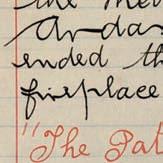 the
ended th
fireplace
"The Pal